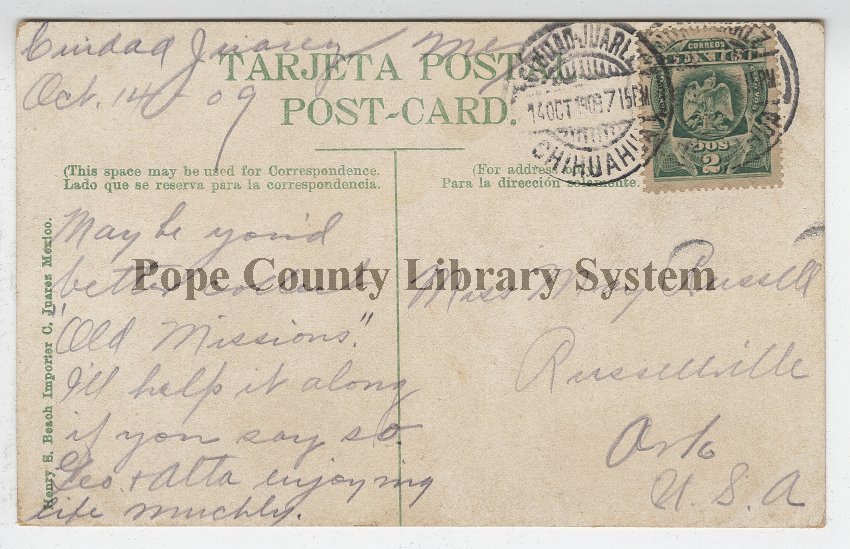 Ciudad Juarez Mex
Oct. 14 - 09
TARJETA POSTAL
POST-CARD.
CIUDAD JUAREZ
14 OCT 1909 7 15PM
CHIHUAHUA
CORREOS
MEXICO
DOS
2
(This space may be used for Correspondence.
Lado que se reserva para la correspondencia.
(For address only.)
Para la dirección solamente.
Henry S. Beach Importer C. Juarez Mexico.
Maybe you'd
better collect
"Old Missions."
I'll help it along
if you say so.
Geo + Atta enjoying
life muchly.
Pope County Library System
Miss May Russell
Russellville
Ark
U. S. A